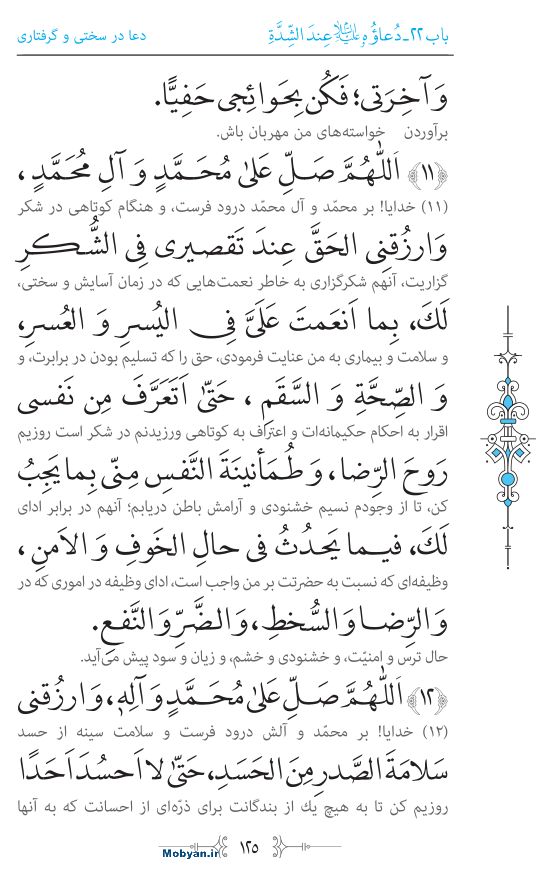 باب ۲۲ـ دُعاؤُه علیه‌السلام عِندَ الشِّدَّةِ
دعا در سختی و گرفتاری
وَ آخِرَتی؛ فَکُن بِحَوائِجی حَفِیًّا.
برآوردن خواسته‌های من مهربان باش.
﴿۱۱﴾ اَللّٰهُمَّ صَلِّ عَلیٰ مُحَمَّدٍ وَ آلِ مُحَمَّدٍ ،
(۱۱) خدایا! بر محمّد و آل محمّد درود فرست، و هنگام کوتاهی در شکر
وَ ارزُقنِی الحَقَّ عِندَ تَقصیری فِی الشُّکرِ
گزاریت، آنهم شکرگزاری به خاطر نعمت‌هایی که در زمان آسایش و سختی،
لَكَ، بِما اَنعَمتَ عَلَیَّ فِی الیُسرِ وَ العُسرِ،
و سلامت و بیماری به من عنایت فرمودی، حق را که تسلیم بودن در برابرت، و
وَ الصِّحَّةِ وَ السَّقَمِ ، حَتّیٰ اَتَعَرَّفَ مِن نَفسی
اقرار به احکام حکیمانه‌ات و اعتراف به کوتاهی ورزیدنم در شکر است روزیم
رَوحَ الرِّضا، وَ طُمَأنینَةَ النَّفسِ مِنّی بِما یَجِبُ
کن، تا از وجودم نسیم خشنودی و آرامش باطن دریابم؛ آنهم در برابر ادای
لَكَ، فیما یَحدُثُ فی حالِ الخَوفِ وَ الاَمنِ ،
وظیفه‌ای که نسبت به حضرتت بر من واجب است، ادای وظیفه در اموری که در
وَ الرِّضا وَ السُّخطِ ، وَ الضَّرِّ وَ النَّفعِ.
حال ترس و امنیّت، و خشنودی و خشم، و زیان و سود پیش می‌آید.
﴿۱۲﴾ اَللّٰهُمَّ صَلِّ عَلیٰ مُحَمَّدٍ وَ آلِهِ، وَ ارزُقنی
(۱۲) خدایا! بر محمّد و آلش درود فرست و سلامت سینه از حسد
سَلامَةَ الصَّدرِ مِنَ الحَسَدِ، حَتّیٰ لا اَحسُدَ اَحَدًا
روزیم کن تا به هیچ یك از بندگانت برای ذرّه‌ای از احسانت که به آنها
۱۲۵
Mobyan.ir